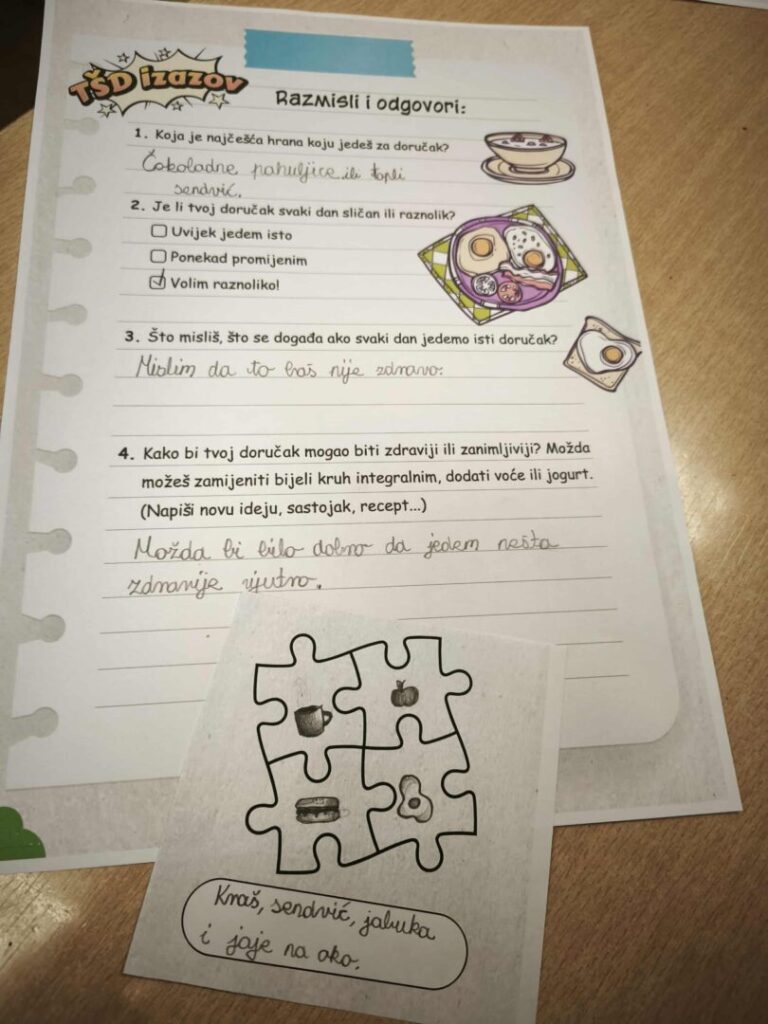 TŠD izazov
Razmisli i odgovori:
1. Koja je najčešća hrana koju jedeš za doručak?
Čokoladne pahuljice ili topli
sendvić.
2. Je li tvoj doručak svaki dan sličan ili raznolik?
Uvijek jedem isto
Ponekad promijenim
Volim raznoliko!
3. Što misliš, što se događa ako svaki dan jedemo isti doručak?
Mislim da to baš nije zdravo.
4. Kako bi tvoj doručak mogao biti zdraviji ili zanimljiviji? Možda
možeš zamijeniti bijeli kruh integralnim, dodati voće ili jogurt.
(Napiši novu ideju, sastojak, recept...)
Možda bi bilo dobro da jedem nešta
zdravije ujutro.
Kraš, sendvić, jabuka
i jaje na oko.